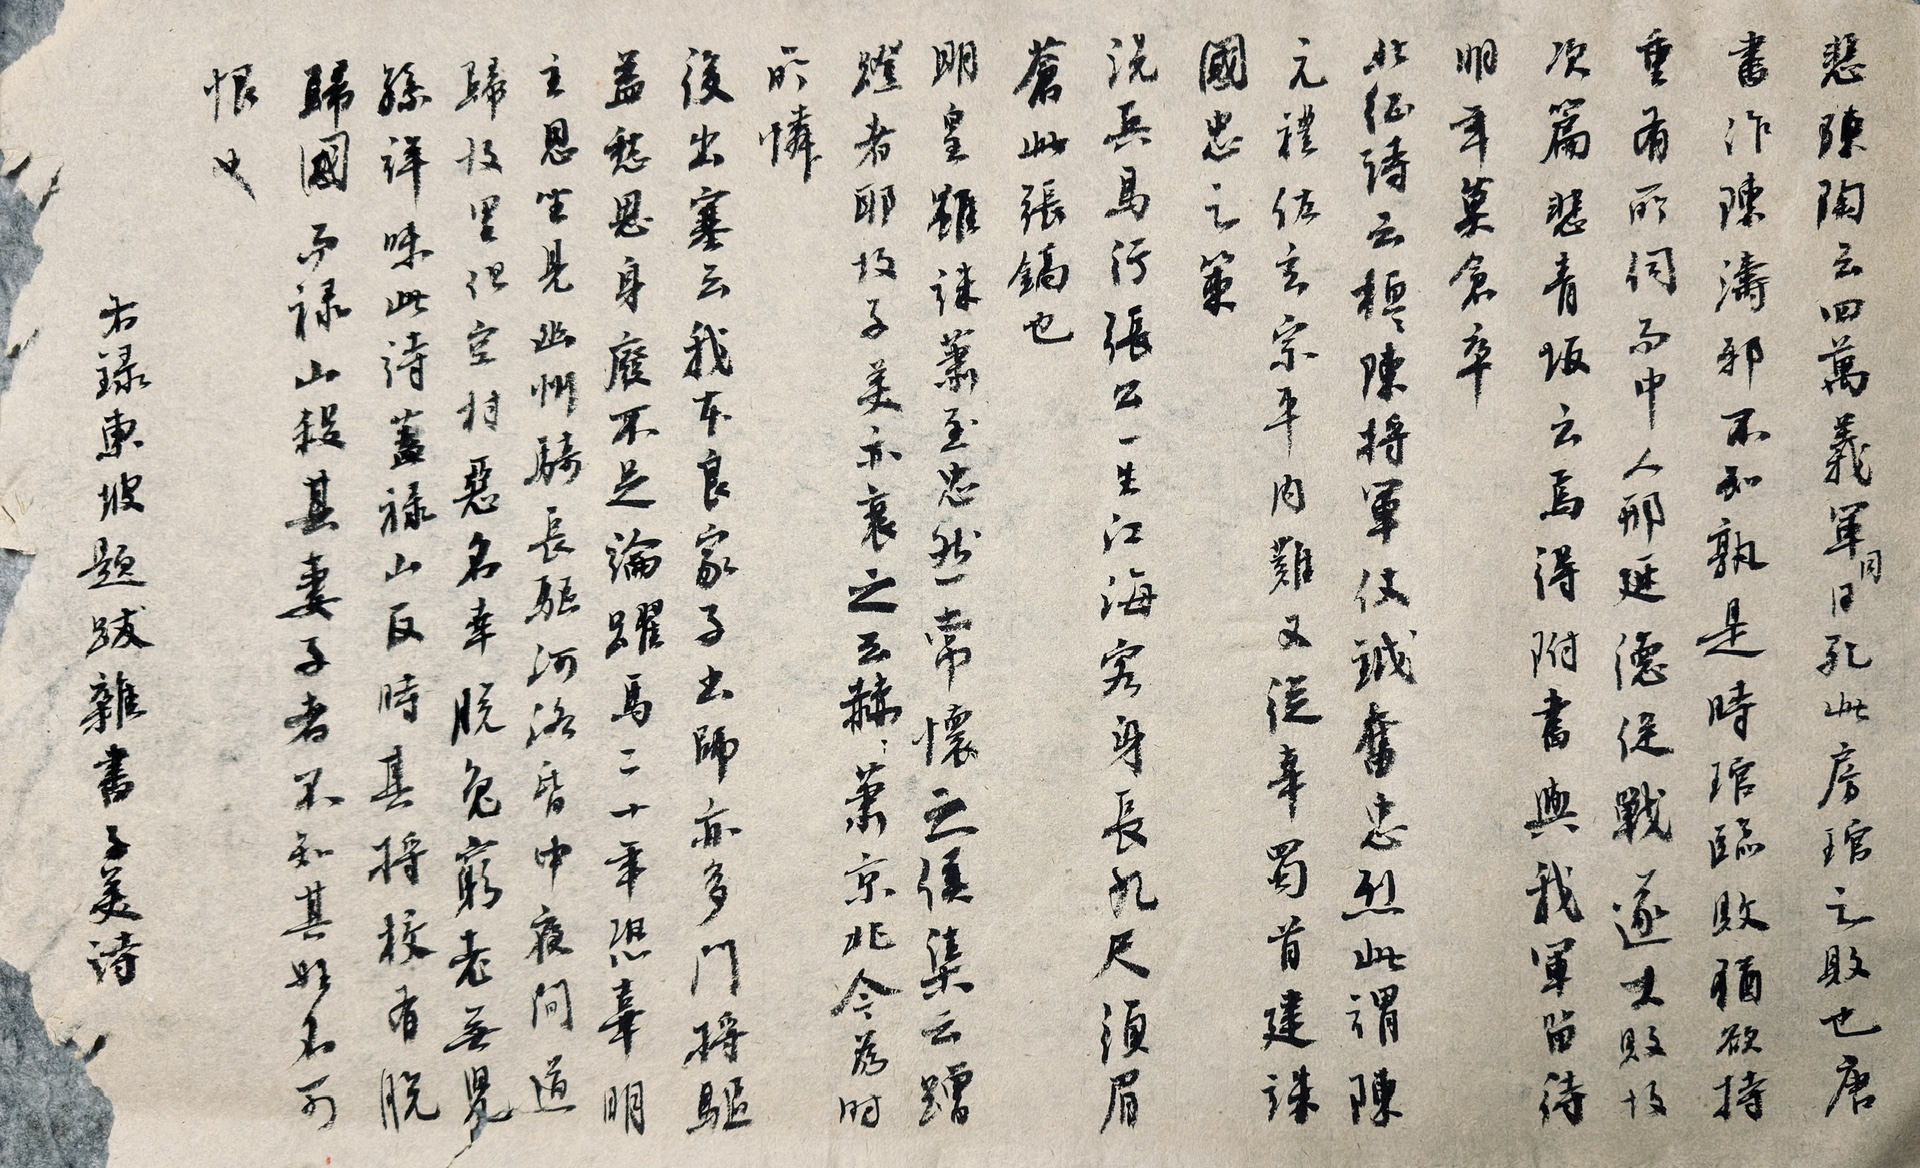 悲陳陶云四萬義軍同日死此房琯之敗也唐
書作陳濤邪不知孰是時琯臨敗猶欲持
重有所伺而中人邢延德促戰遂大敗故
次篇悲青坂云焉得附書與我軍留待
明年莫倉卒
北征詩云桓桓陳將軍仗鉞奮忠烈此謂陳
元禮佐玄宗平內難又從幸蜀首建誅
國忠之策
洗兵馬行張公一生江海客身長九尺須眉
蒼此張鎬也
明皇雖誅蕭至忠然常懷之侯集云蹭
蹬者耶故子美亦哀之云赫赫蕭京兆今為時
所憐
後出塞云我本良家子出師亦多門將驕
益愁思身廢不足論躍馬二十年恐辜明
主恩坐見幽州騎長驅河洛昏中夜間道
歸故里但空村惡名幸脫免窮老無兒
孫詳味此詩蓋祿山反時其將校有脫
歸國而祿山殺其妻子者不知其姓名可
恨也
右錄東坡題跋雜書子美詩